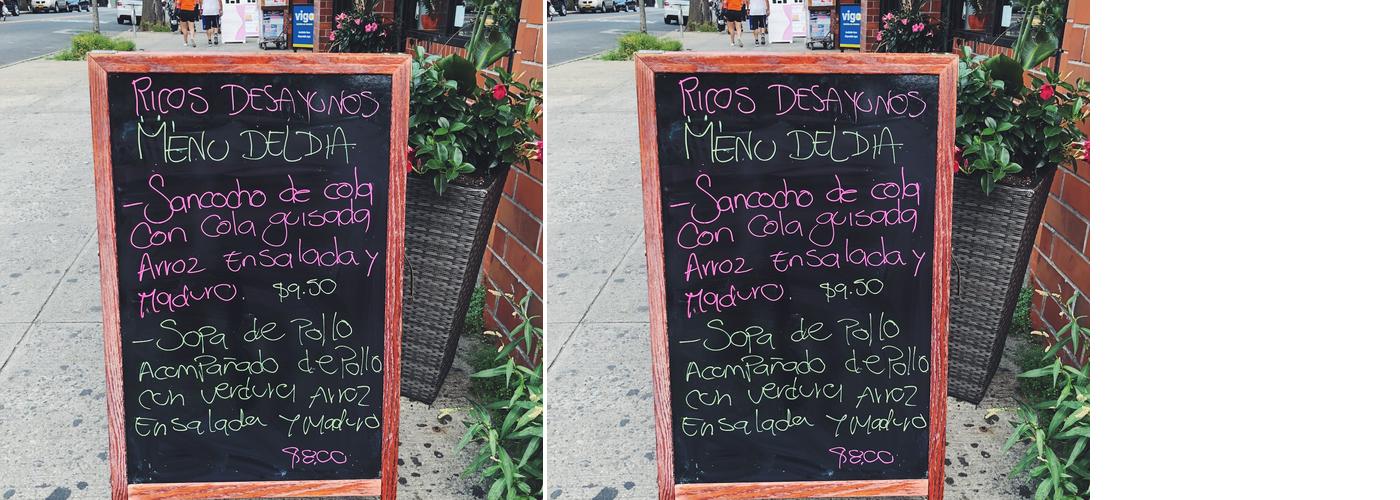 vigo
RICOS DESAYUNOS
MENU DEL DIA
-Sancocho de cola
Con Cola guisada
Arroz Ensalada y
Maduro. $9.50
-Sopa de Pollo
Acompañado de Pollo
con verdura Arroz
Ensalada Y Maduro
$8.00
vigo
RICOS DESAYUNOS
MENU DEL DIA
-Sancocho de cola
Con Cola guisada
Arroz Ensalada y
Maduro. $9.50
-Sopa de Pollo
Acompañado de Pollo
con verdura Arroz
Ensalada Y Maduro
$8.00